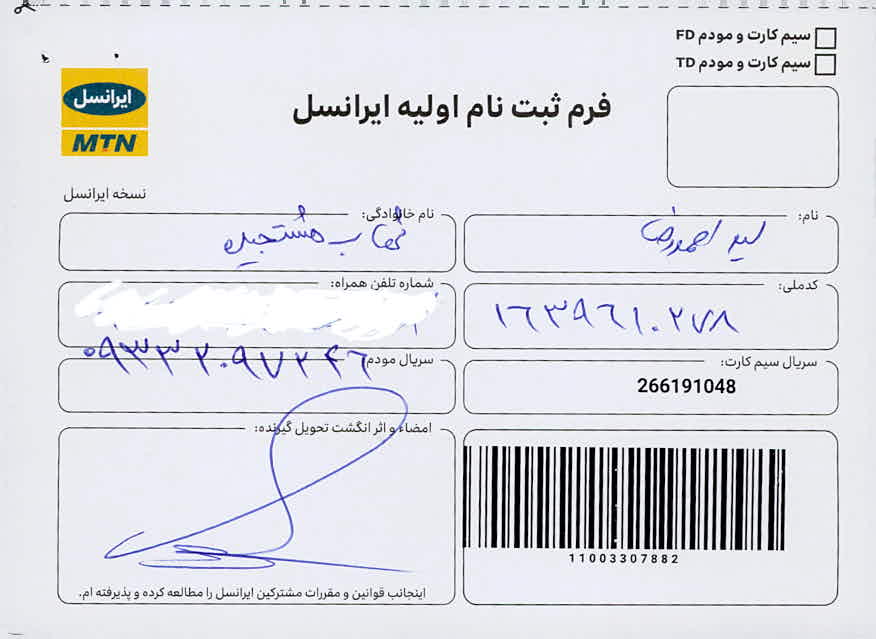 سیم کارت و مودم FD
سیم کارت و مودم TD
ایرانسل
MTN
فرم ثبت نام اولیه ایرانسل
نسخه ایرانسل
نام:
احمدرضا
نام خانوادگی:
کدملی:
۱۶۳۹۶۱۰۲۷۸
شماره تلفن همراه:
۰۹۳۳۲۰۹۷۲۴۶
سریال سیم کارت:
266191048
سریال مودم
امضاء و اثر انگشت تحویل گیرنده:
11003307882
اینجانب قوانین و مقررات مشترکین ایرانسل را مطالعه کرده و پذیرفته ام.